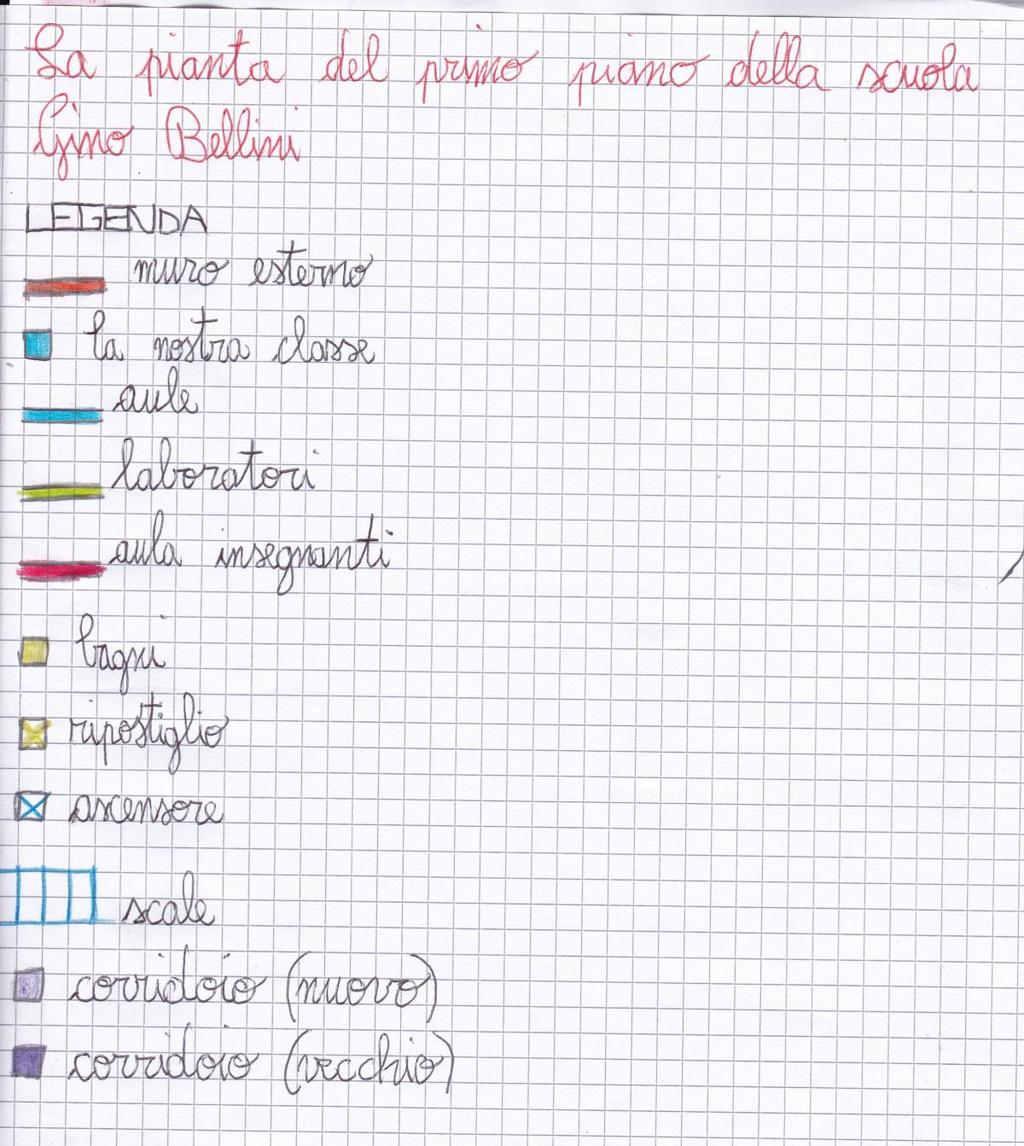 La pianta del primo piano della scuola
Gino Bellini
LEGENDA
muro esterno
la nostra classe
aule
laboratori
aula insegnanti
bagni
ripostiglio
ascensore
scale
corridoio (nuovo)
corridoio (vecchio)